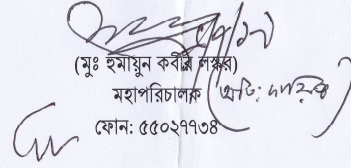 (মুঃ হুমায়ুন কবীর লস্কর)
মহাপরিচালক (অতি: দায়িত্ব)
ফোন: ৫৫০২৭৭৩৪